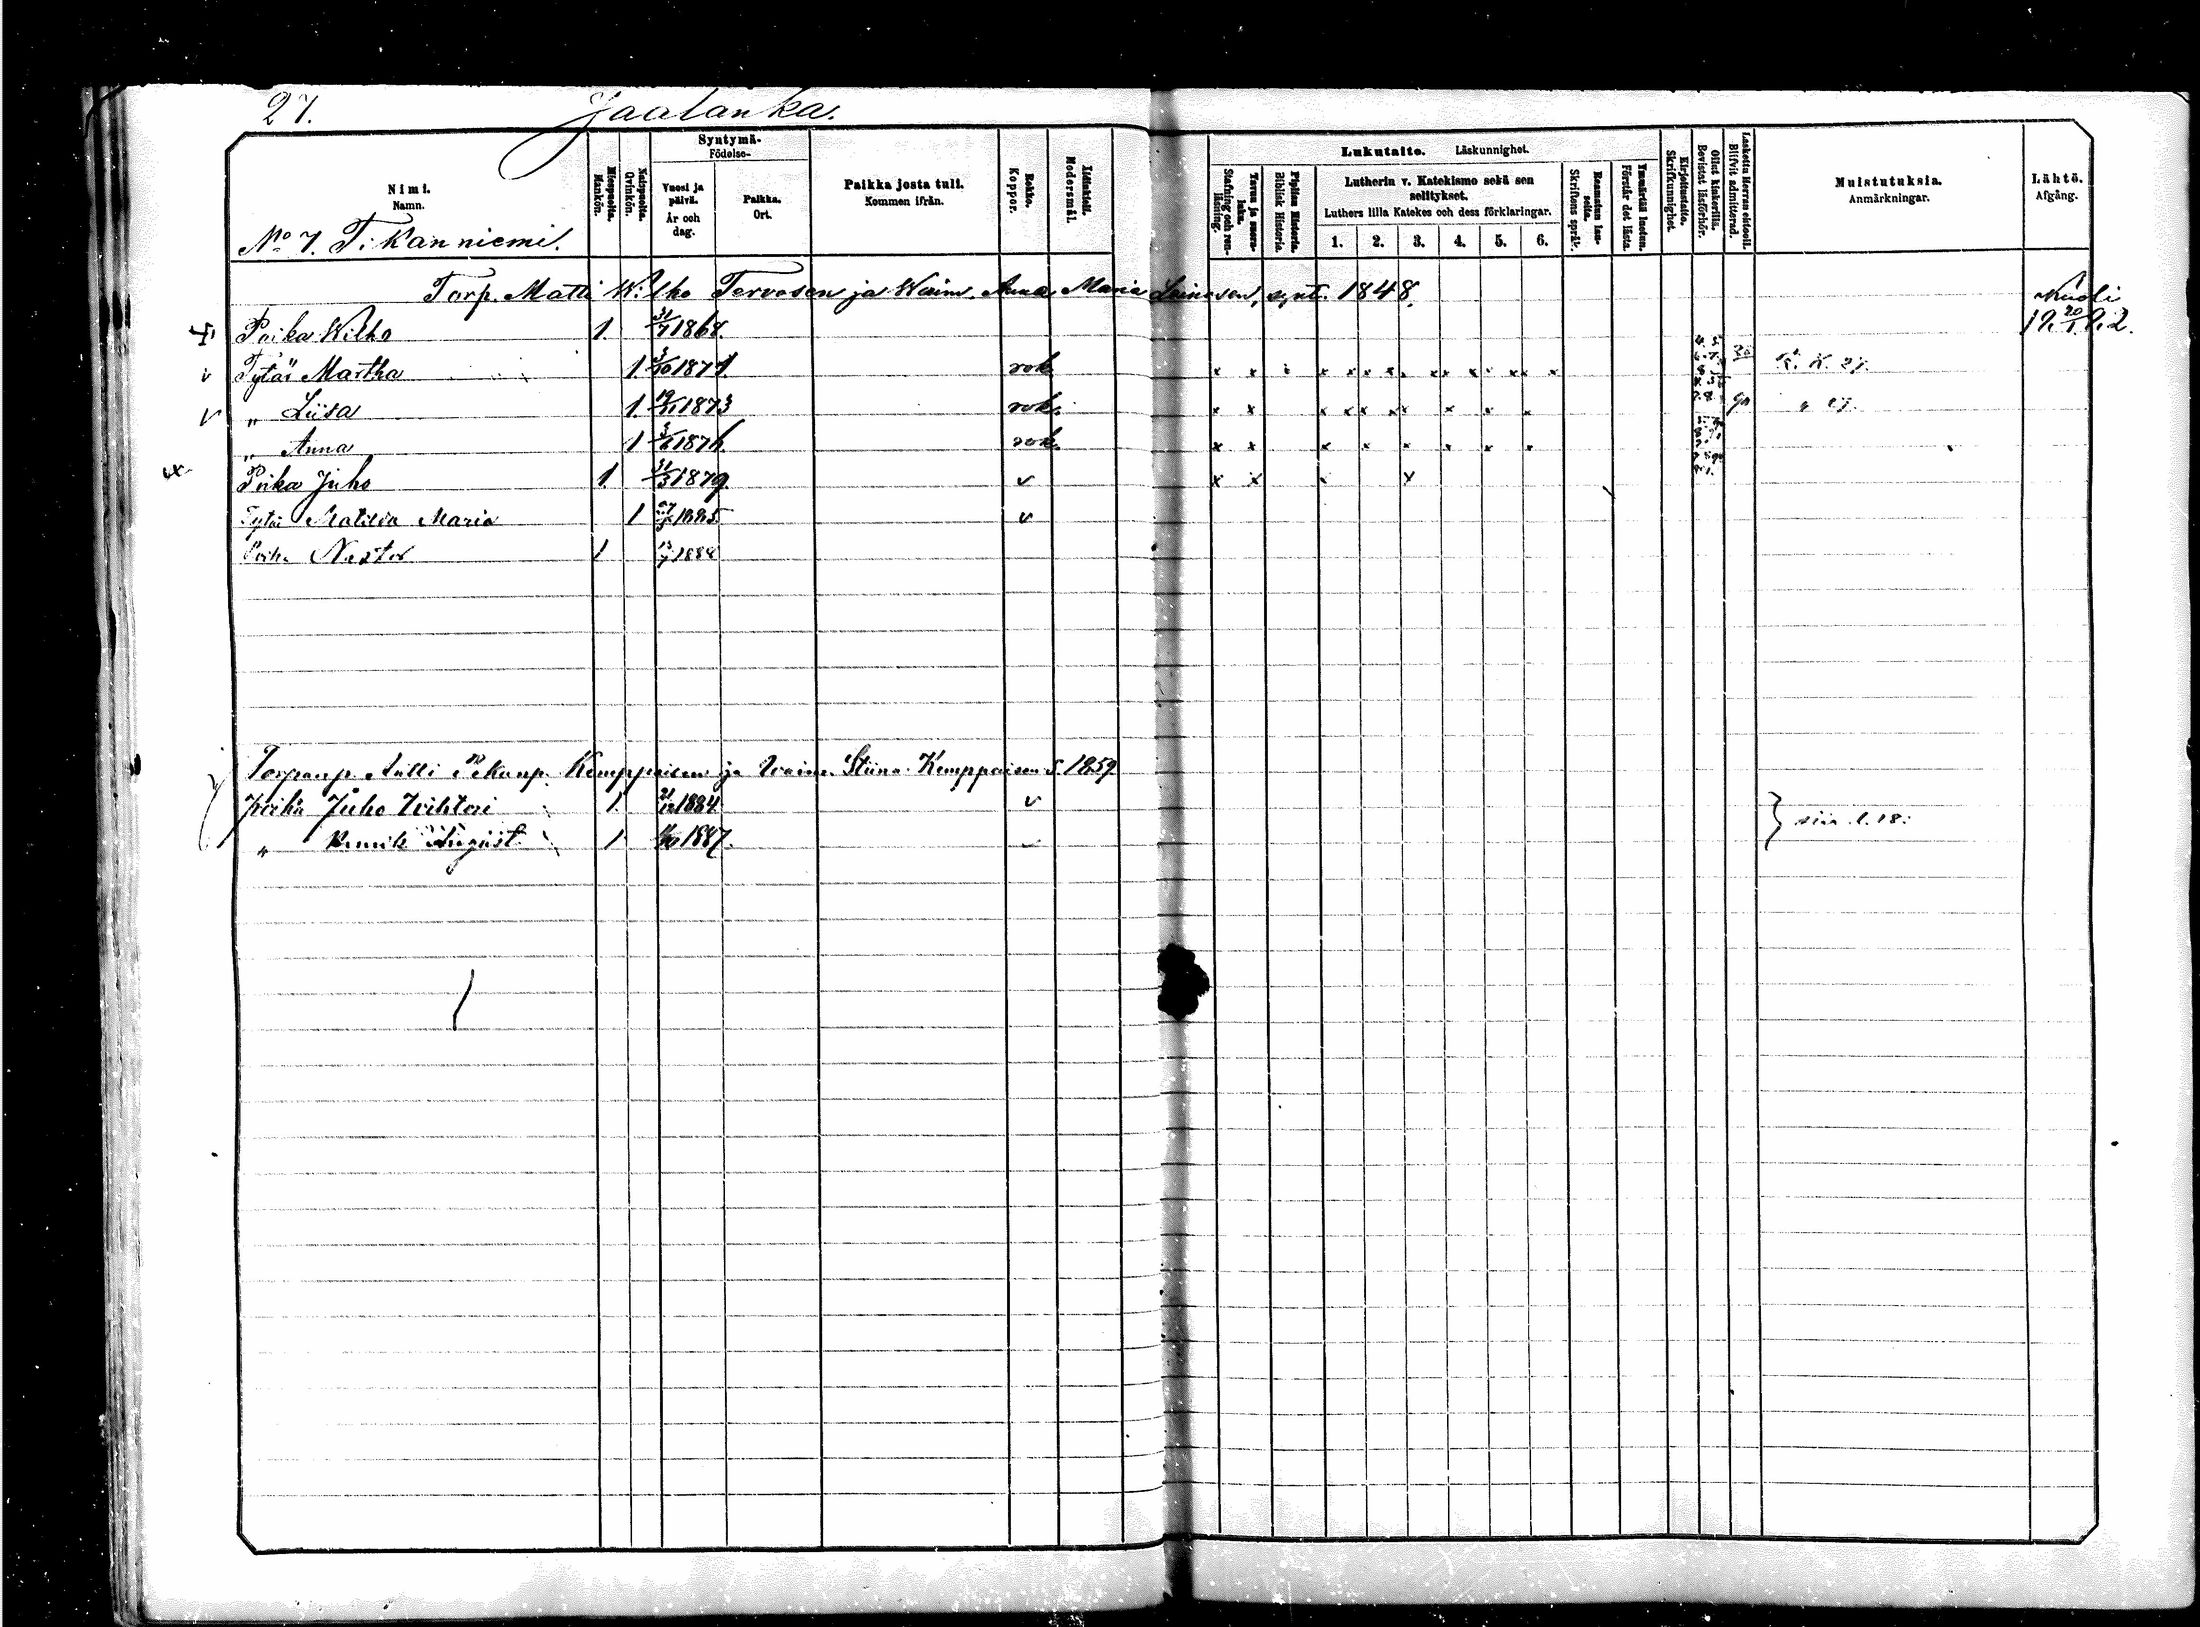 27. Jaalanka.
Nimi. Namn.
Miespuolta. Mankön.
Naispuolta. Qvinkön.
Syntymä- Födelse-
Vuosi ja päivä. År och dag.
Paikka. Ort.
Paikka josta tuli. Kommen ifrån.
Rokko. Koppor.
Äidinkieli. Modersmål.
Lukutaito. Läskunnighet.
Tavuu ja suora- luku. Stafning och ren- läsning.
Piplian Historia. Biblisk Historia.
Lutherin v. Katekismo sekä sen selitykset.
Luthers lilla Katekes och dess förklaringar.
1. 2. 3. 4. 5. 6.
Raamatun lau- seita. Skriftens språk.
Ymmärtää luetun. Förstår det lästa.
Kirjoitustaito. Skrifkunnighet.
Ollut kinkerillä. Bevistat läsförhör.
Laskettu Herran ehtooll. Blifvit admitterad.
Muistutuksia. Anmärkningar.
Lähtö. Afgång.
No 7. T. Kanniemi.
Torp. Matti Wilho Tervosen ja Waim. Anna Maria Leinosen, synt. 1848.
Kuoli
Poika Wilho 1. 31/7 1868. 19 20/1 92.
Tytär Martha 1. 3/10 1871. rok x x x x x x x x x x x K. K. 27.
„ Liisa 1. 19/11 1873 rok. x x x x x x x x x „ 27.
„ Anna 1 3/6 1876. rok. x x x x x x x x
Poika Juho 1. 31/3 1879. v x x x
Tytär Matilda Maria 1 1885 v
Nestor 1 13/7 1888
Kemppaisen ja Waim. Stiina Kemppaisen S. 1859.
Poika Juho Wihtori 1. 21/12 1884 v
„ August 1 1887. siv. l. 18.